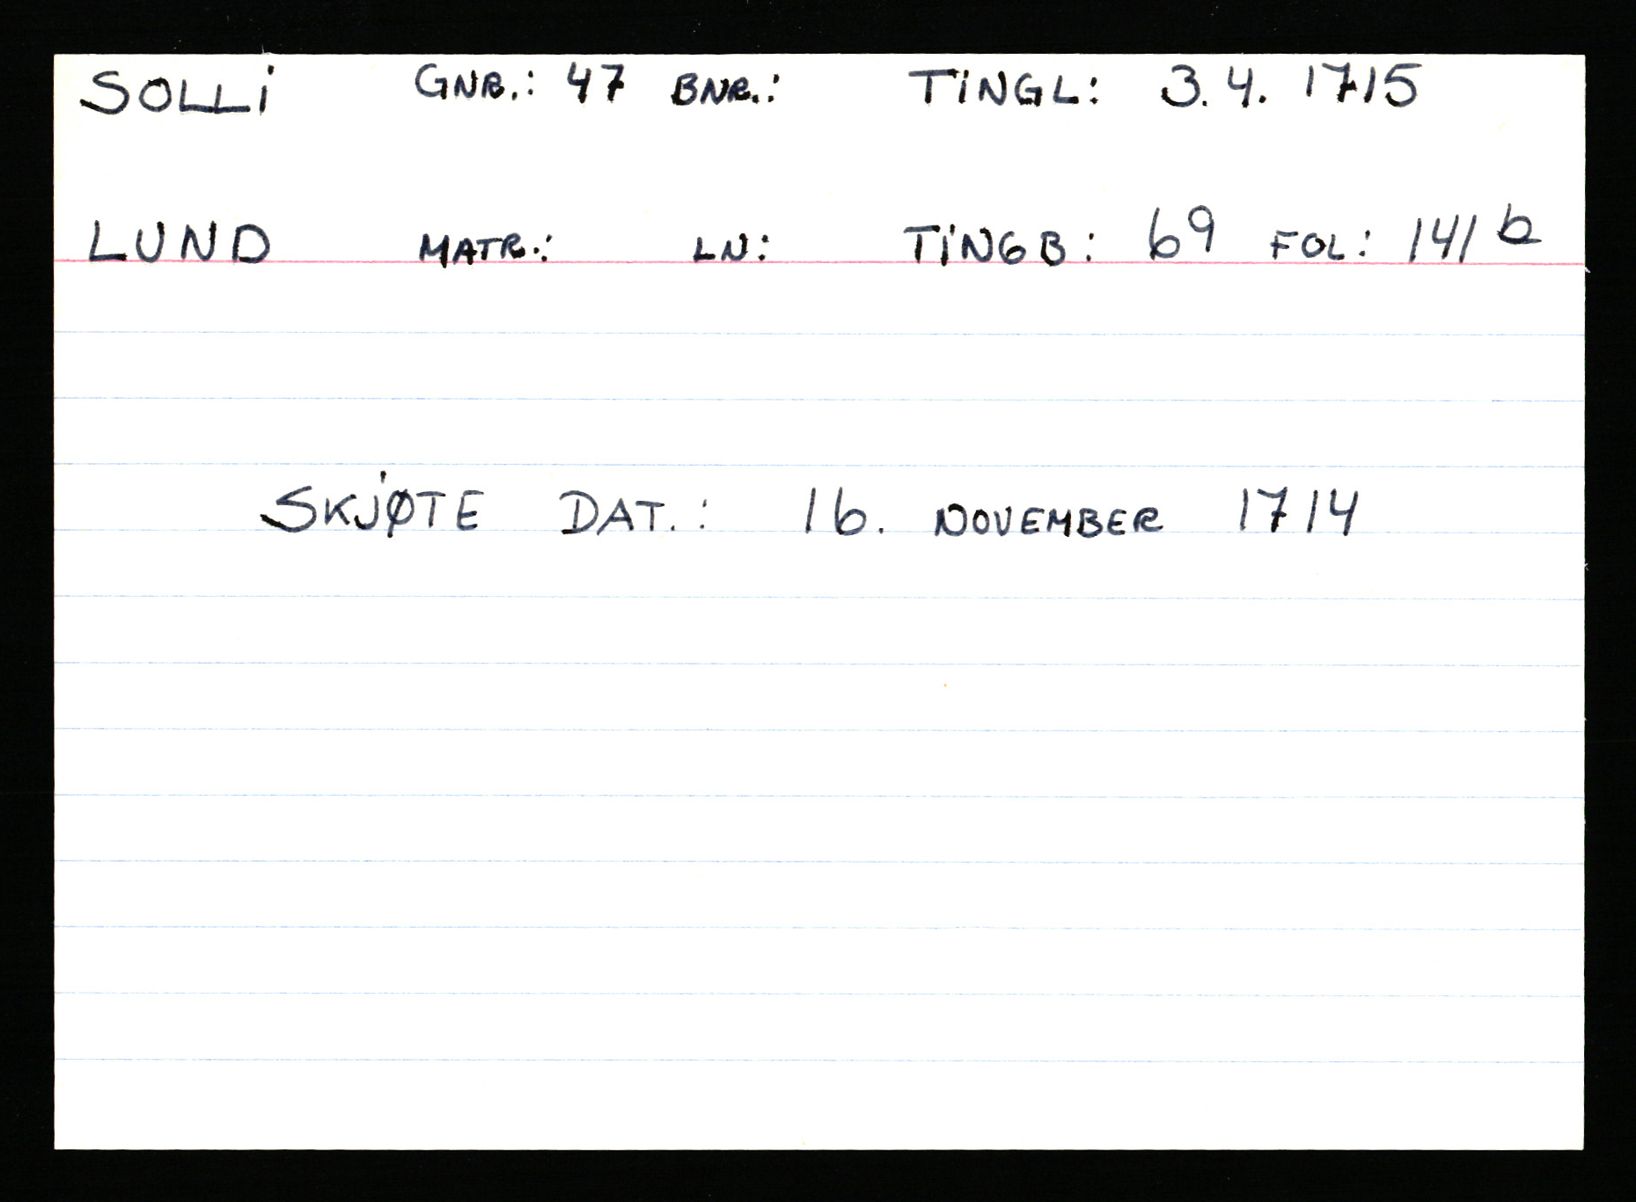 SOLLI GNR.: 47 BNR.: TINGL: 3.4. 1715
LUND MATR.: LN: TINGB: 69 FOL: 141 b
SKJØTE DAT.: 16. NOVEMBER 1714